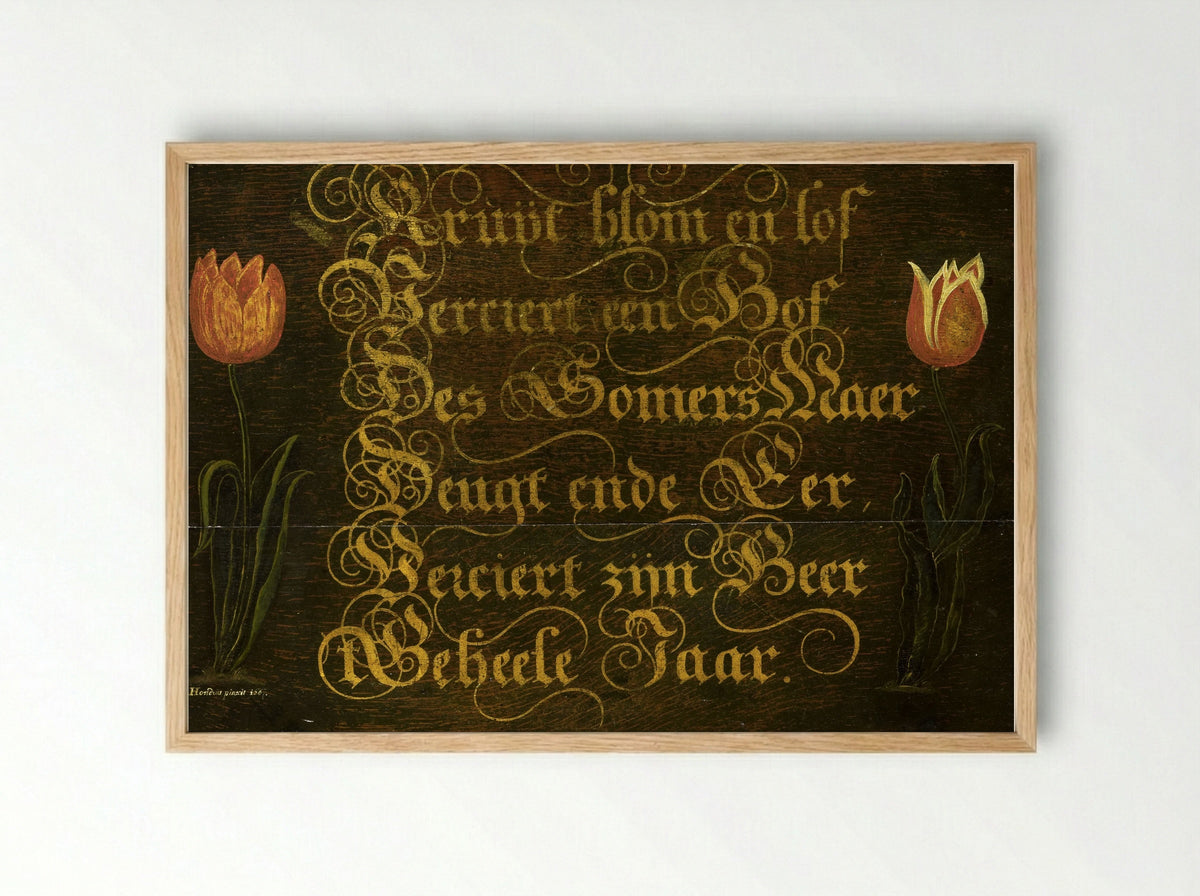 Krùÿt blom en lof
Verciert een Hof,
Des Somers Maer
Deugt ende Eer,
Verciert zijn Heer
tGeheele Jaar.
pinxit